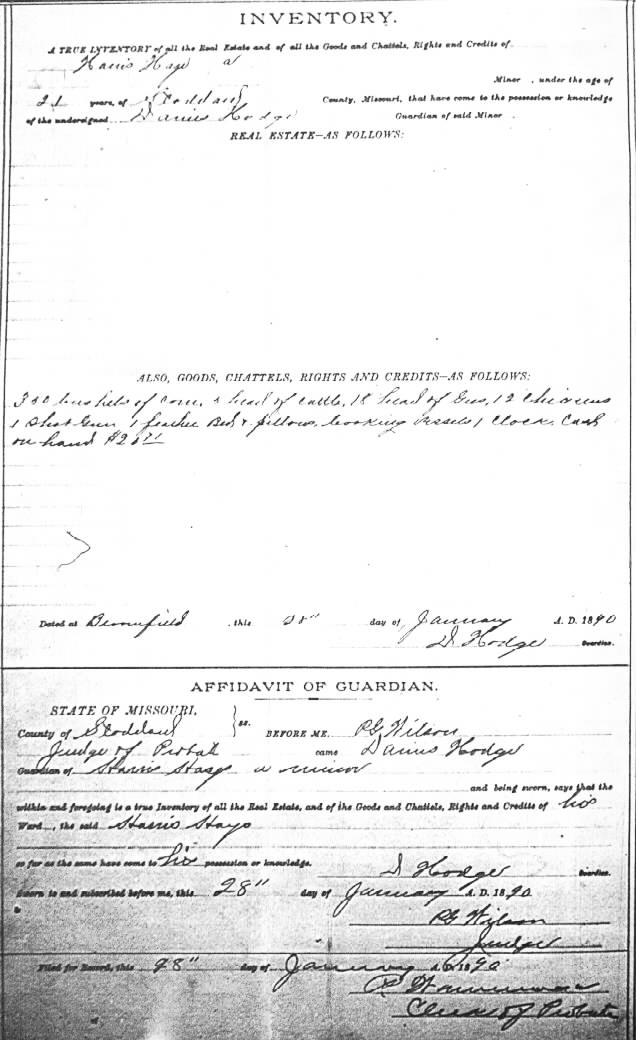 INVENTORY.
A TRUE INVENTORY of all the Real Estate and of all the Goods and Chattels, Rights and Credits of
Harris Hays a
Minor , under the age of
21 years, of Stoddard County, Missouri, that have come to the possession or knowledge
of the undersigned Darius Hodge Guardian of said Minor .
REAL ESTATE—AS FOLLOWS:
ALSO, GOODS, CHATTELS, RIGHTS AND CREDITS—AS FOLLOWS:
300 bushels of corn, head of cattle, 18 head of 12 Chickens
1 Shot Gun 1 feather Bed & pillows, Cooking Vessels 1 Clock, Cash
on hand
Dated at Bloomfield , this 28" day of January A. D. 1890
D Hodge Guardian.
AFFIDAVIT OF GUARDIAN.
STATE OF MISSOURI,
County of Stoddard } ss. BEFORE ME, PG Wilson
Judge of Probate came Darius Hodge
Guardian of Harris Hays a minor
and being sworn, says that the
within and foregoing is a true Inventory of all the Real Estate, and of the Goods and Chattels, Rights and Credits of his
Ward , the said Harris Hays
so far as the same have come to his possession or knowledge.
D Hodge Guardian.
Sworn to and subscribed before me, this 28" day of January A. D. 1890
PG Wilson
Judge
Filed for Record, this 28" day of January A. D. 1890
Clerk of Probate